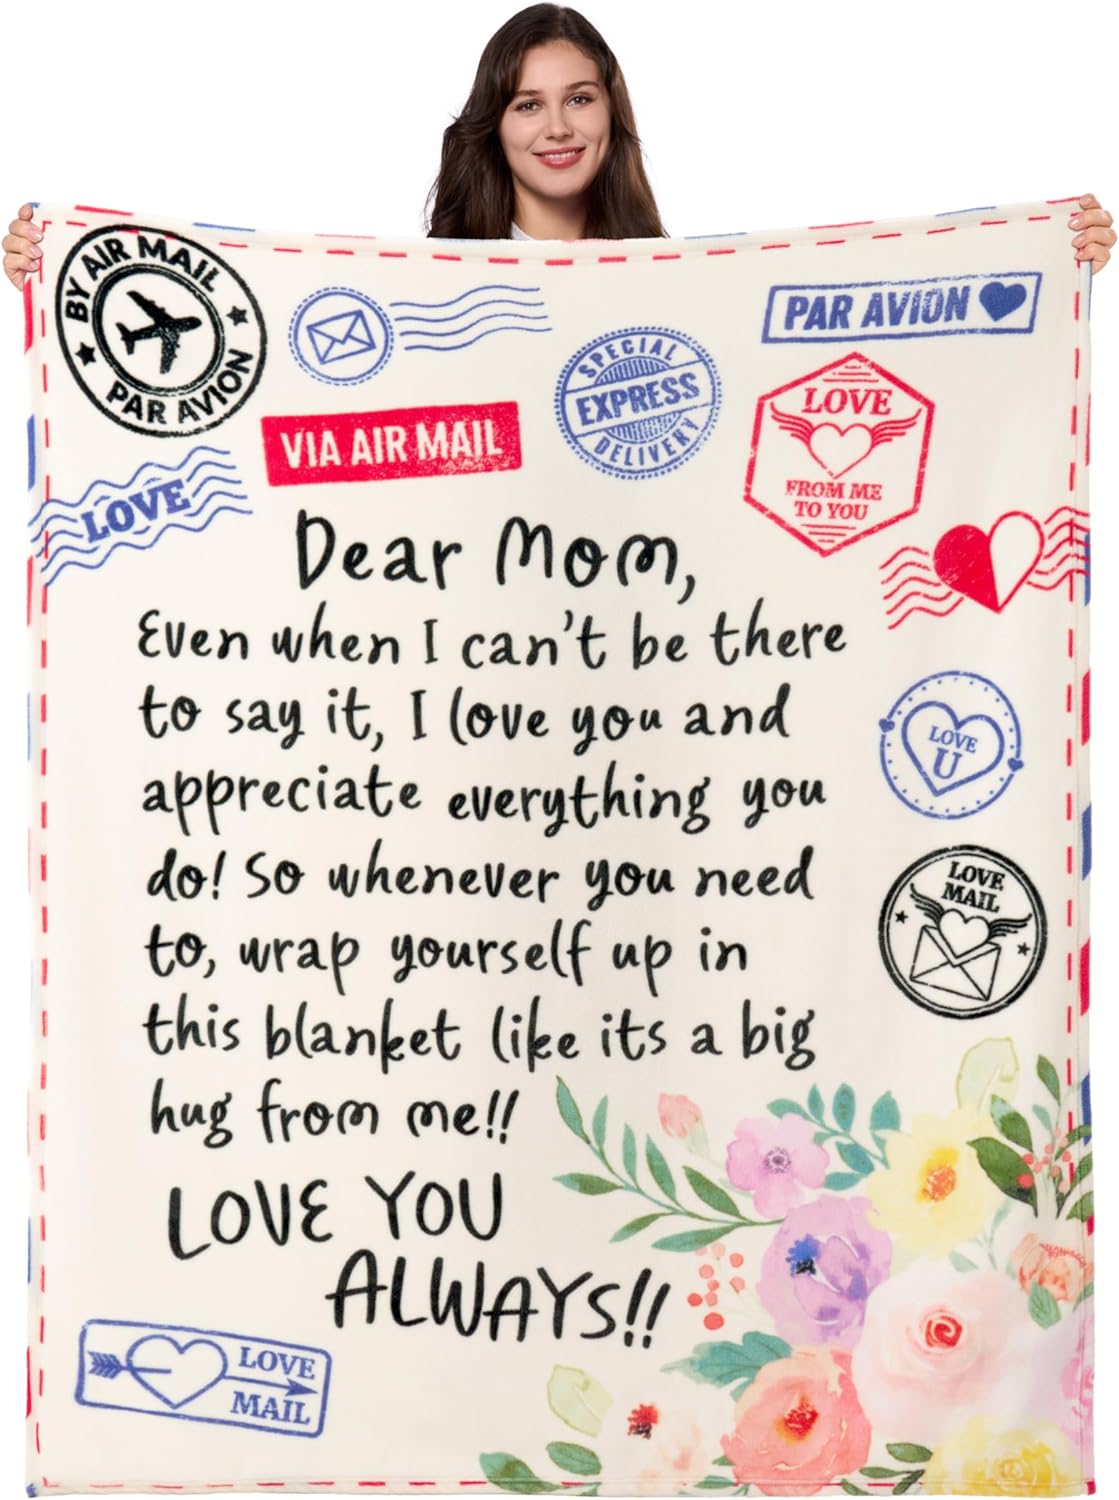 BY AIR MAIL
PAR AVION
PAR AVION
SPECIAL
EXPRESS
DELIVERY
LOVE
FROM ME
TO YOU
VIA AIR MAIL
LOVE
Dear Mom,
Even when I can't be there
to say it, I love you and
appreciate everything you
do! So whenever you need
to, wrap yourself up in
this blanket like its a big
hug from me!!
LOVE YOU
ALWAYS!!
LOVE
U
LOVE
MAIL
LOVE
MAIL